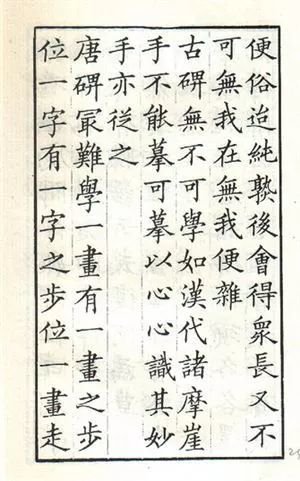 便俗迨純熟後會得衆長又不
可無我在無我便雜
古碑無不可學如漢代諸摩崖
手不能摹可摹以心心識其妙
手亦從之
唐碑冣難學一畫有一畫之步
位一字有一字之步位一畫走